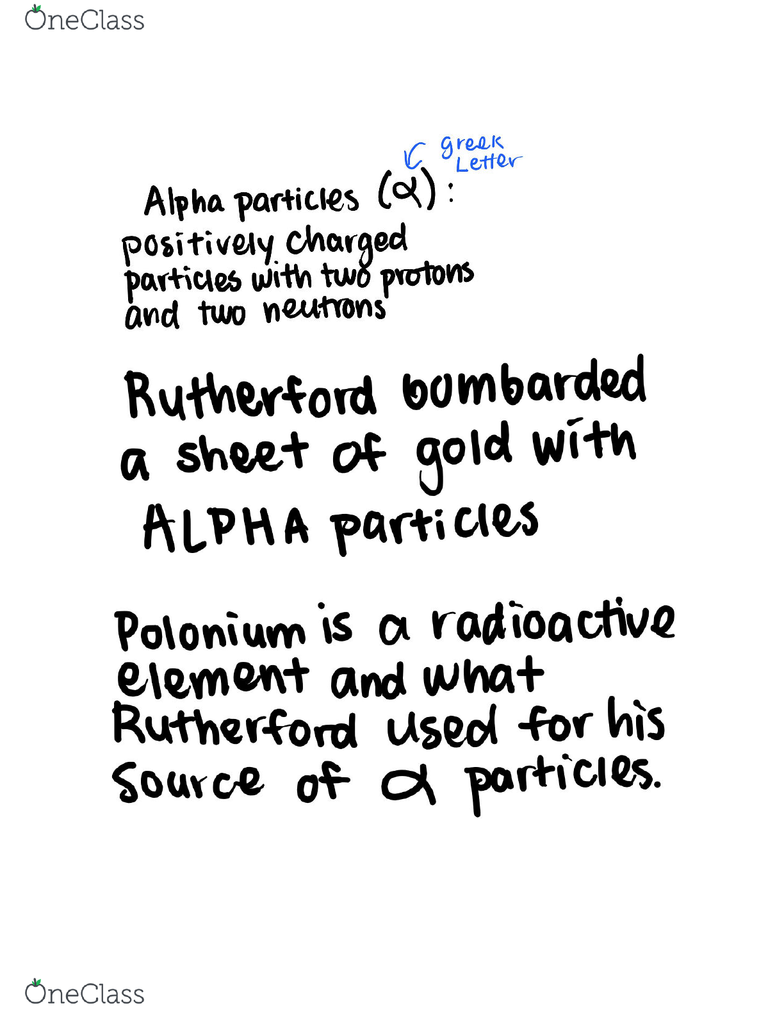 OneClass
greek
Letter
Alpha particles (α):
positively charged
particles with two protons
and two neutrons
Rutherford bombarded
a sheet of gold with
ALPHA particles
Polonium is a radioactive
element and what
Rutherford used for his
source of α particles.
OneClass